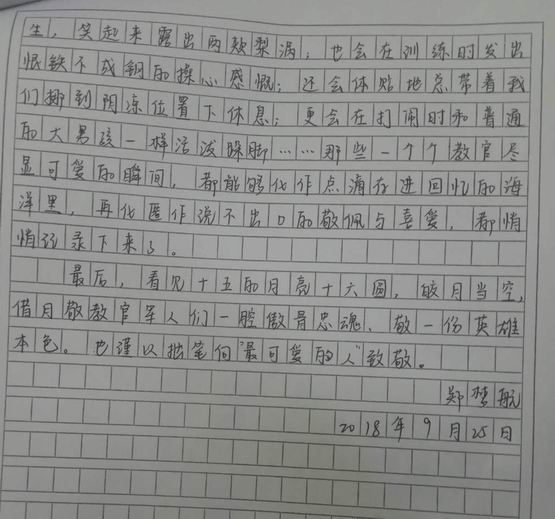 生，笑起来露出两颊梨涡；也会在训练时发出
恨铁不成钢的操心感慨；还会体贴地总带着我
们挪到阴凉位置下休息；更会在打闹时和普通
的大男孩一样活泼跺脚……那些一个个教官尽
显可爱的瞬间，都能够化作点滴存进回忆的海
洋里，再化匿作说不出口的敬佩与喜爱，都悄
悄记录下来了。
最后，看见十五的月亮十六圆，皎月当空，
借月敬教官军人们一腔傲骨忠魂、敬一份英雄
本色。也谨以拙笔向"最可爱的人"致敬。
郑梦航
2018年9月25日